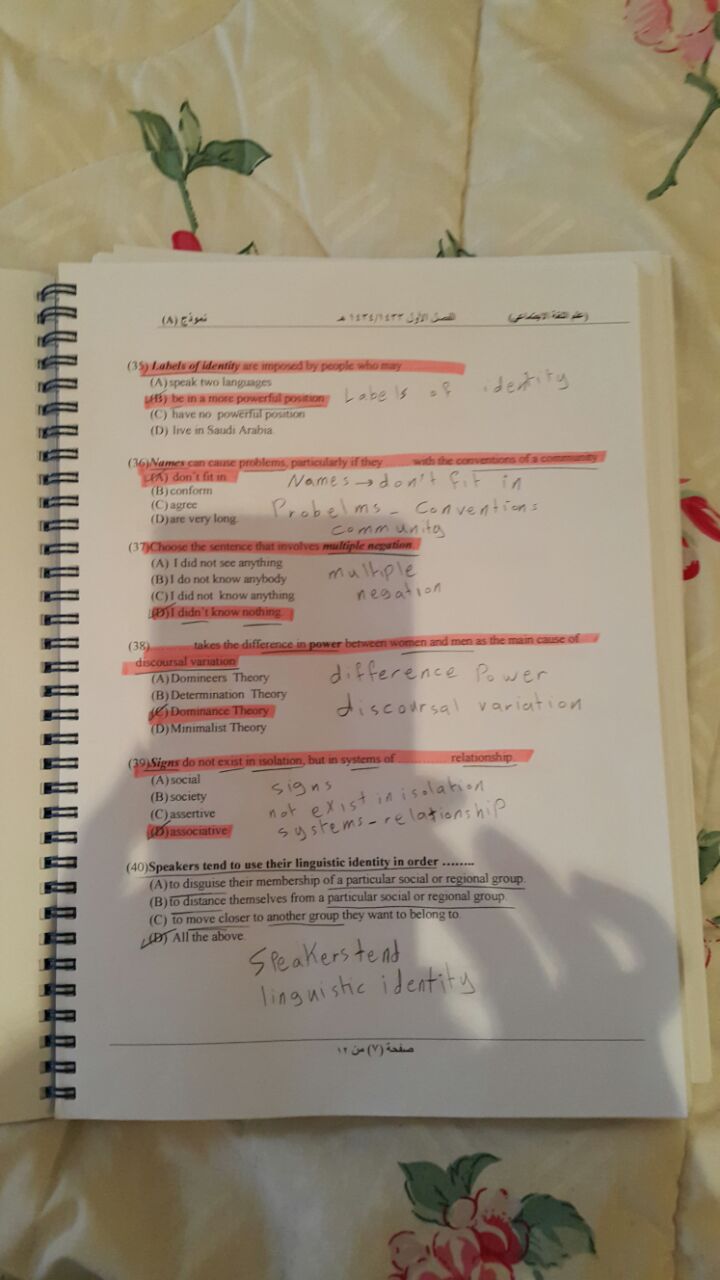 (علم اللغة الاجتماعي) الفصل الأول ١٤٣٤/١٤٣٣ هـ نموذج (A)
(35) Labels of identity are imposed by people who may
(A) speak two languages
(B) be in a more powerful position Labels of identity
(C) have no powerful position
(D) live in Saudi Arabia.
(36) Names can cause problems, particularly if they ...... with the conventions of a community
(A) don't fit in Names → don't fit in
(B) conform
(C) agree Probelms - conventions
(D) are very long. community
(37) Choose the sentence that involves multiple negation
(A) I did not see anything multiple
(B) I do not know anybody
(C) I did not know anything negation
(D) I didn't know nothing.
(38) .......... takes the difference in power between women and men as the main cause of
discoursal variation
(A) Domineers Theory difference Power
(B) Determination Theory
(C) Dominance Theory discoursal variation
(D) Minimalist Theory
(39) Signs do not exist in isolation, but in systems of .............. relationship.
(A) social signs
(B) society not exist in isolation
(C) assertive
(D) associative systems - relationship
(40) Speakers tend to use their linguistic identity in order ........
(A) to disguise their membership of a particular social or regional group.
(B) to distance themselves from a particular social or regional group.
(C) to move closer to another group they want to belong to.
(D) All the above.
Speakers tend
linguistic identity
صفحة (٧) من ١٢